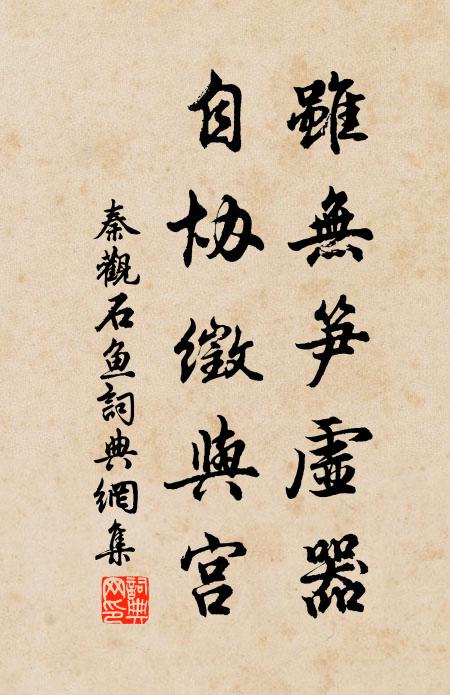 雖無笋虛器
自协徵與宮
秦觀石鱼詞典網集
詞典
网印